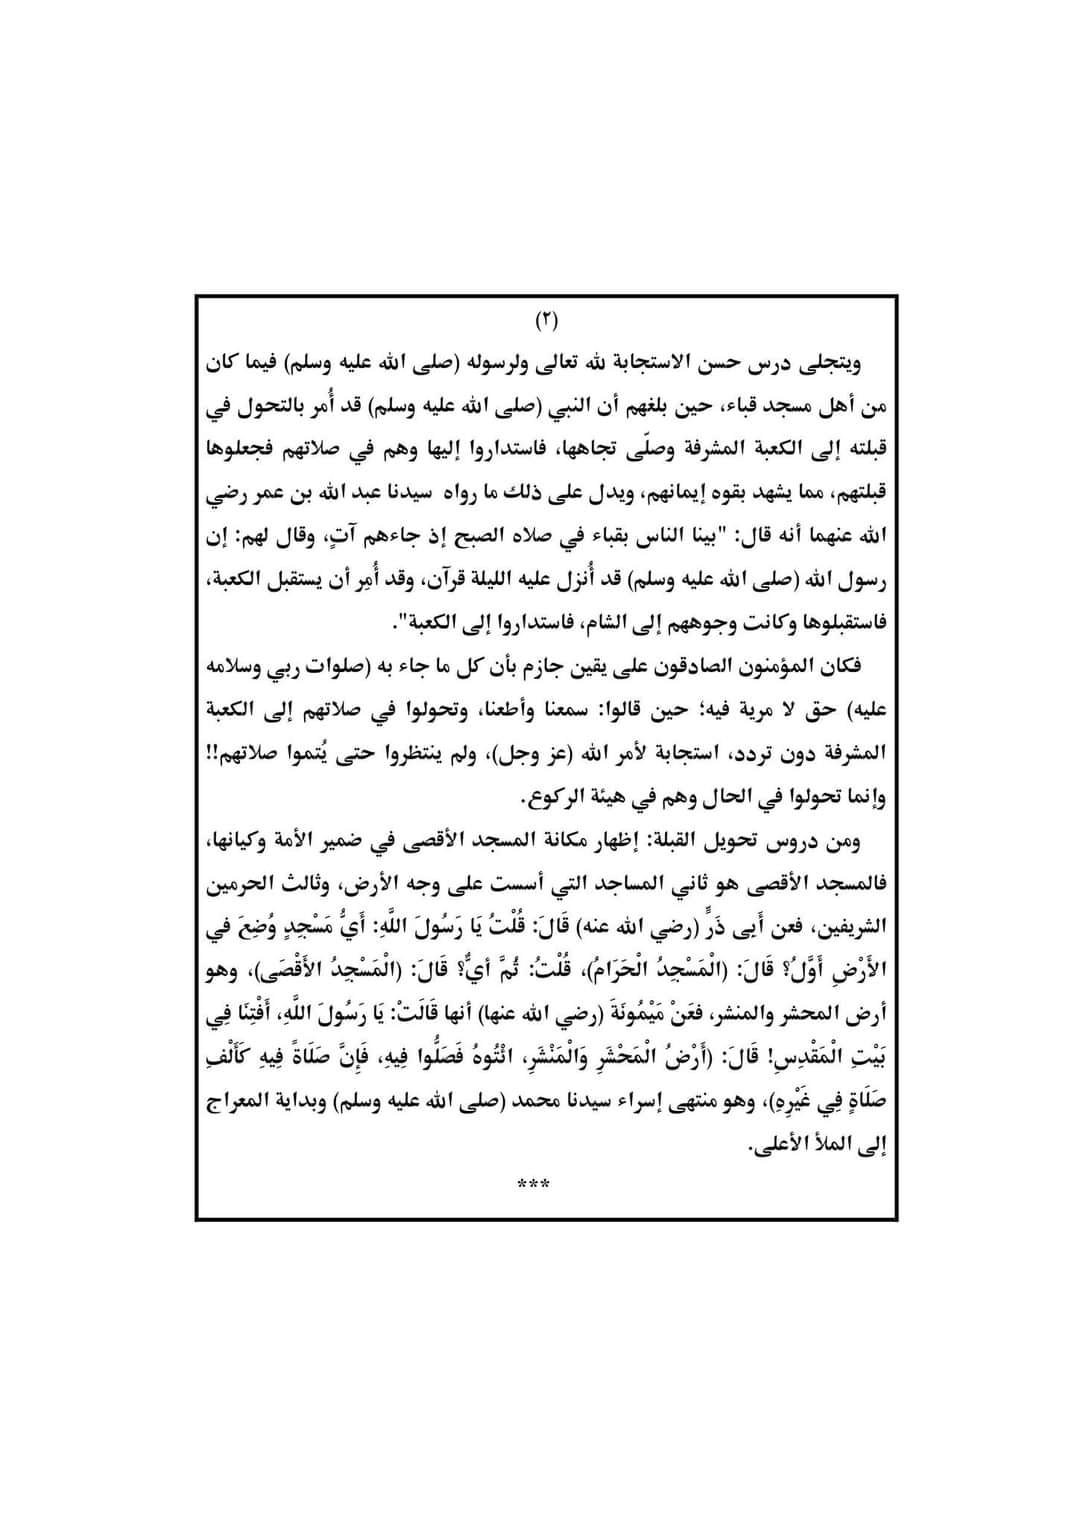 (٢)
ويتجلى درس حسن الاستجابة لله تعالى ولرسوله (صلى الله عليه وسلم) فيما كان
من أهل مسجد قباء، حين بلغهم أن النبي (صلى الله عليه وسلم) قد أُمر بالتحول في
قبلته إلى الكعبة المشرفة وصلّى تجاهها، فاستداروا إليها وهم في صلاتهم فجعلوها
قبلتهم، مما يشهد بقوه إيمانهم، ويدل على ذلك ما رواه سيدنا عبد الله بن عمر رضي
الله عنهما أنه قال: "بينا الناس بقباء في صلاه الصبح إذ جاءهم آتٍ، وقال لهم: إن
رسول الله (صلى الله عليه وسلم) قد أُنزل عليه الليلة قرآن، وقد أُمِر أن يستقبل الكعبة،
فاستقبلوها وكانت وجوههم إلى الشام، فاستداروا إلى الكعبة".
فكان المؤمنون الصادقون على يقين جازم بأن كل ما جاء به (صلوات ربي وسلامه
عليه) حق لا مرية فيه؛ حين قالوا: سمعنا وأطعنا، وتحولوا في صلاتهم إلى الكعبة
المشرفة دون تردد، استجابة لأمر الله (عز وجل)، ولم ينتظروا حتى يُتموا صلاتهم!!
وإنما تحولوا في الحال وهم في هيئة الركوع.
ومن دروس تحويل القبلة: إظهار مكانة المسجد الأقصى في ضمير الأمة وكيانها،
فالمسجد الأقصى هو ثاني المساجد التي أسست على وجه الأرض، وثالث الحرمين
الشريفين، فعن أَبِى ذَرٍّ (رضي الله عنه) قَالَ: قُلْتُ يَا رَسُولَ اللَّهِ: أَيُّ مَسْجِدٍ وُضِعَ في
الأَرْضِ أَوَّلُ؟ قَالَ: (الْمَسْجِدُ الْحَرَامُ)، قُلْتُ: ثُمَّ أيٌّ؟ قَالَ: (الْمَسْجِدُ الأَقْصَى)، وهو
أرض المحشر والمنشر، فعَنْ مَيْمُونَةَ (رضي الله عنها) أنها قَالَتْ: يَا رَسُولَ اللَّهِ، أَفْتِنَا فِي
بَيْتِ الْمَقْدِسِ! قَالَ: (أَرْضُ الْمَحْشَرِ وَالْمَنْشَرِ، ائْتُوهُ فَصَلُّوا فِيهِ، فَإِنَّ صَلَاةً فِيهِ كَأَلْفِ
صَلَاةٍ فِي غَيْرِهِ)، وهو منتهى إسراء سيدنا محمد (صلى الله عليه وسلم) وبداية المعراج
إلى الملأ الأعلى.
***